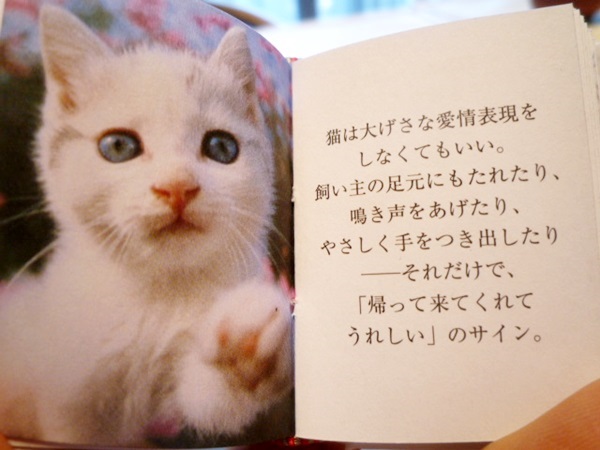 猫は大げさな愛情表現を
しなくてもいい。
飼い主の足元にもたれたり、
鳴き声をあげたり、
やさしく手をつき出したり
――それだけで、
「帰って来てくれて
うれしい」のサイン。